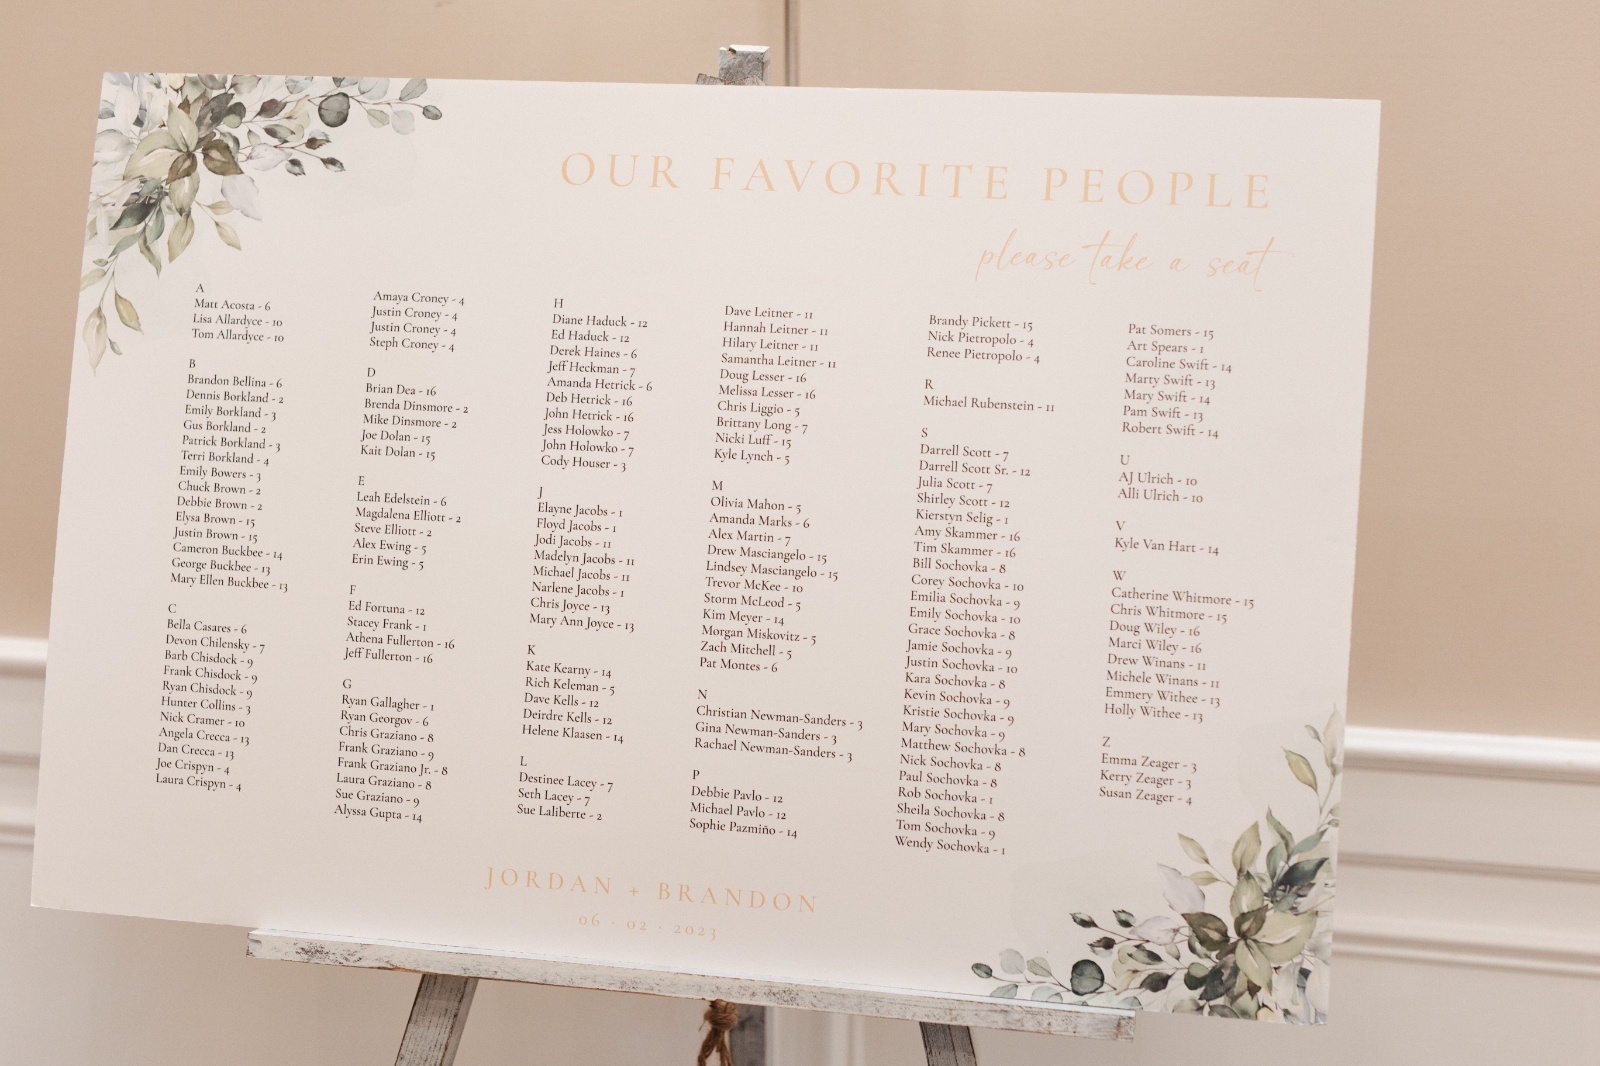 OUR FAVORITE PEOPLE
please take a seat
A
Matt Acosta - 6
Lisa Allardyce - 10
Tom Allardyce - 10
B
Brandon Bellina - 6
Dennis Borkland - 2
Emily Borkland - 3
Gus Borkland - 2
Patrick Borkland - 3
Terri Borkland - 4
Emily Bowers - 3
Chuck Brown - 2
Debbie Brown - 2
Elysa Brown - 15
Justin Brown - 15
Cameron Buckbee - 14
George Buckbee - 13
Mary Ellen Buckbee - 13
C
Bella Casares - 6
Devon Chilensky - 7
Barb Chisdock - 9
Frank Chisdock - 9
Ryan Chisdock - 9
Hunter Collins - 3
Nick Cramer - 10
Angela Crecca - 13
Dan Crecca - 13
Joe Crispyn - 4
Laura Crispyn - 4
Amaya Croney - 4
Justin Croney - 4
Justin Croney - 4
Steph Croney - 4
D
Brian Dea - 16
Brenda Dinsmore - 2
Mike Dinsmore - 2
Joe Dolan - 15
Kait Dolan - 15
E
Leah Edelstein - 6
Magdalena Elliott - 2
Steve Elliott - 2
Alex Ewing - 5
Erin Ewing - 5
F
Ed Fortuna - 12
Stacey Frank - 1
Athena Fullerton - 16
Jeff Fullerton - 16
G
Ryan Gallagher - 1
Ryan Georgov - 6
Chris Graziano - 8
Frank Graziano - 9
Frank Graziano Jr. - 8
Laura Graziano - 8
Sue Graziano - 9
Alyssa Gupta - 14
H
Diane Haduck - 12
Ed Haduck - 12
Derek Haines - 6
Jeff Heckman - 7
Amanda Hetrick - 6
Deb Hetrick - 16
John Hetrick - 16
Jess Holowko - 7
John Holowko - 7
Cody Houser - 3
J
Elayne Jacobs - 1
Floyd Jacobs - 1
Jodi Jacobs - 11
Madelyn Jacobs - 11
Michael Jacobs - 11
Narlene Jacobs - 1
Chris Joyce - 13
Mary Ann Joyce - 13
K
Kate Kearny - 14
Rich Keleman - 5
Dave Kells - 12
Deirdre Kells - 12
Helene Klaasen - 14
L
Destinee Lacey - 7
Seth Lacey - 7
Sue Laliberte - 2
Dave Leitner - 11
Hannah Leitner - 11
Hilary Leitner - 11
Samantha Leitner - 11
Doug Lesser - 16
Melissa Lesser - 16
Chris Liggio - 5
Brittany Long - 7
Nicki Luff - 15
Kyle Lynch - 5
M
Olivia Mahon - 5
Amanda Marks - 6
Alex Martin - 7
Drew Masciangelo - 15
Lindsey Masciangelo - 15
Trevor McKee - 10
Storm McLeod - 5
Kim Meyer - 14
Morgan Miskovitz - 5
Zach Mitchell - 5
Pat Montes - 6
N
Christian Newman-Sanders - 3
Gina Newman-Sanders - 3
Rachael Newman-Sanders - 3
P
Debbie Pavlo - 12
Michael Pavlo - 12
Sophie Pazmiño - 14
Brandy Pickett - 15
Nick Pietropolo - 4
Renee Pietropolo - 4
R
Michael Rubenstein - 11
S
Darrell Scott - 7
Darrell Scott Sr. - 12
Julia Scott - 7
Shirley Scott - 12
Kierstyn Selig - 1
Amy Skammer - 16
Tim Skammer - 16
Bill Sochovka - 8
Corey Sochovka - 10
Emilia Sochovka - 9
Emily Sochovka - 10
Grace Sochovka - 8
Jamie Sochovka - 9
Justin Sochovka - 10
Kara Sochovka - 8
Kevin Sochovka - 9
Kristie Sochovka - 9
Mary Sochovka - 9
Matthew Sochovka - 8
Nick Sochovka - 8
Paul Sochovka - 8
Rob Sochovka - 1
Sheila Sochovka - 8
Tom Sochovka - 9
Wendy Sochovka - 1
Pat Somers - 15
Art Spears - 1
Caroline Swift - 14
Marty Swift - 13
Mary Swift - 14
Pam Swift - 13
Robert Swift - 14
U
AJ Ulrich - 10
Alli Ulrich - 10
V
Kyle Van Hart - 14
W
Catherine Whitmore - 15
Chris Whitmore - 15
Doug Wiley - 16
Marci Wiley - 16
Drew Winans - 11
Michele Winans - 11
Emmery Withee - 13
Holly Withee - 13
Z
Emma Zeager - 3
Kerry Zeager - 3
Susan Zeager - 4
JORDAN + BRANDON
06 . 02 . 2023